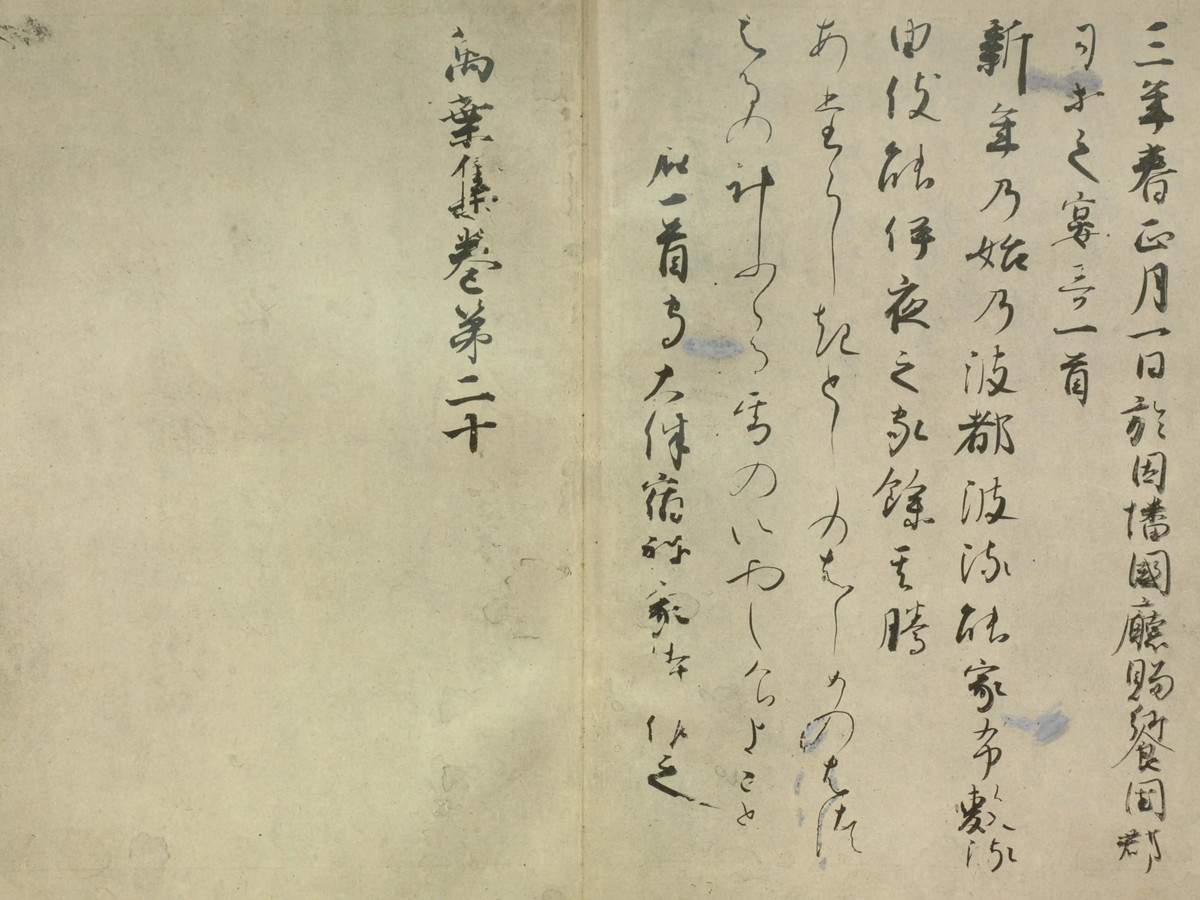 三年春正月一日於因幡國廳賜饗國郡
司等之宴哥一首
新年乃始乃波都波流能家布敷流
由伎能伊夜之家餘其騰
あたらしきとしのはしめのはつ
はるの計ふふる雪のいやしけよこと
右一首守大伴宿祢家持作之
萬葉集巻第二十